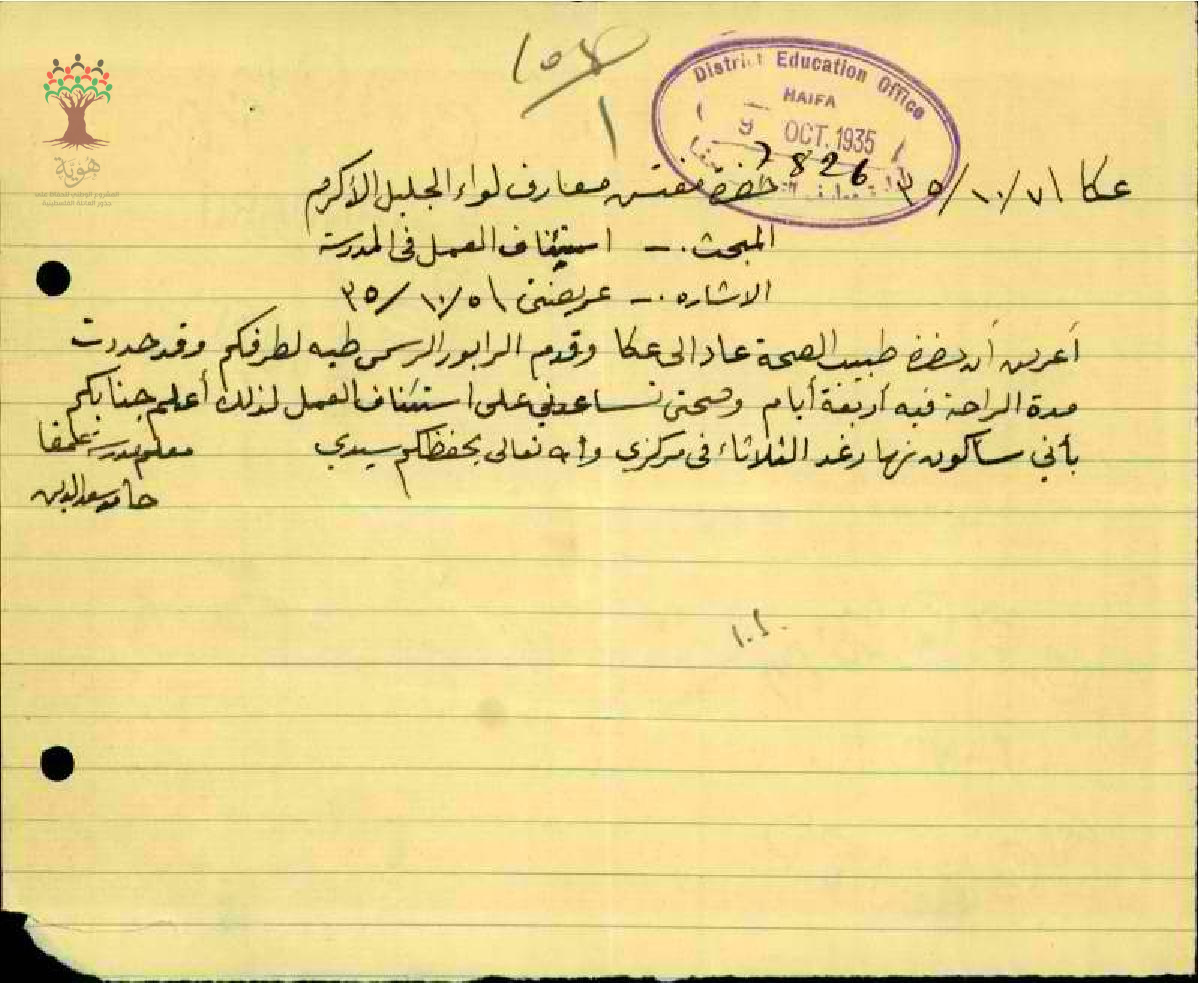 ١٥٤
١
District Education Office
HAIFA
9 OCT. 1935
7826
هوية
المشروع الوطني للحفاظ على
جذور العائلة الفلسطينية
عكا ٧ / ١٠ / ٣٥
حضرة مفتش معارف لواء الجليل الأكرم
المبحث .- استئناف العمل في المدرسة
الاشاره .- عريضتي ٥ / ١٠ / ٣٥
أعرض أن حضرة طبيب الصحة عاد الى عكا وقدم الرابور الرسمي طيه لطرفكم وقد حددت
مدة الراحة فيه أربعة أيام وصحتي تساعدني على استئناف العمل لذلك أعلم جنابكم
بأني سأكون نهار غد الثلاثاء في مركزي والله تعالى يحفظكم سيدي
معلم مدرسة
حامد سعد الدين